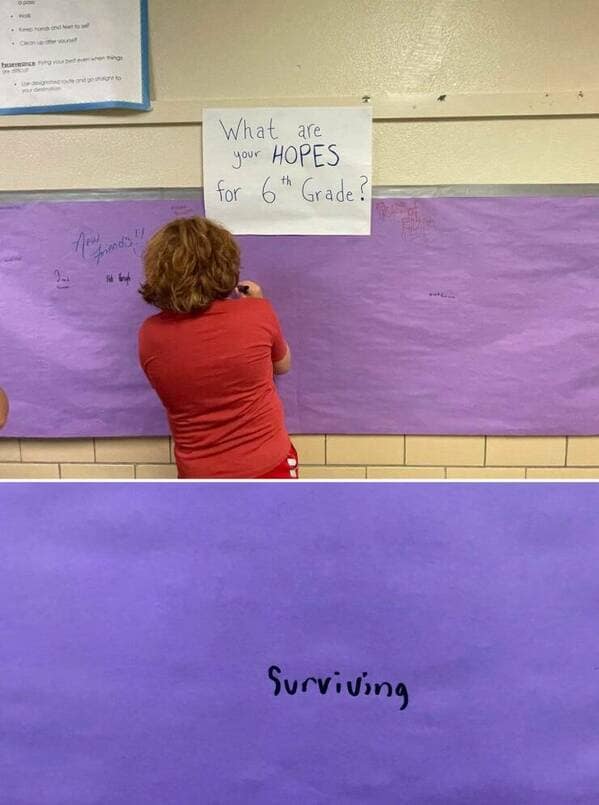 a pass
• Walk
• Keep hands and feet to self
• Clean up after yourself
Perseverance: Trying your best even when things
are difficult
• Use designated route and go straight to
your destination
What are
your HOPES
for 6th Grade?
New
friends!!
Surviving